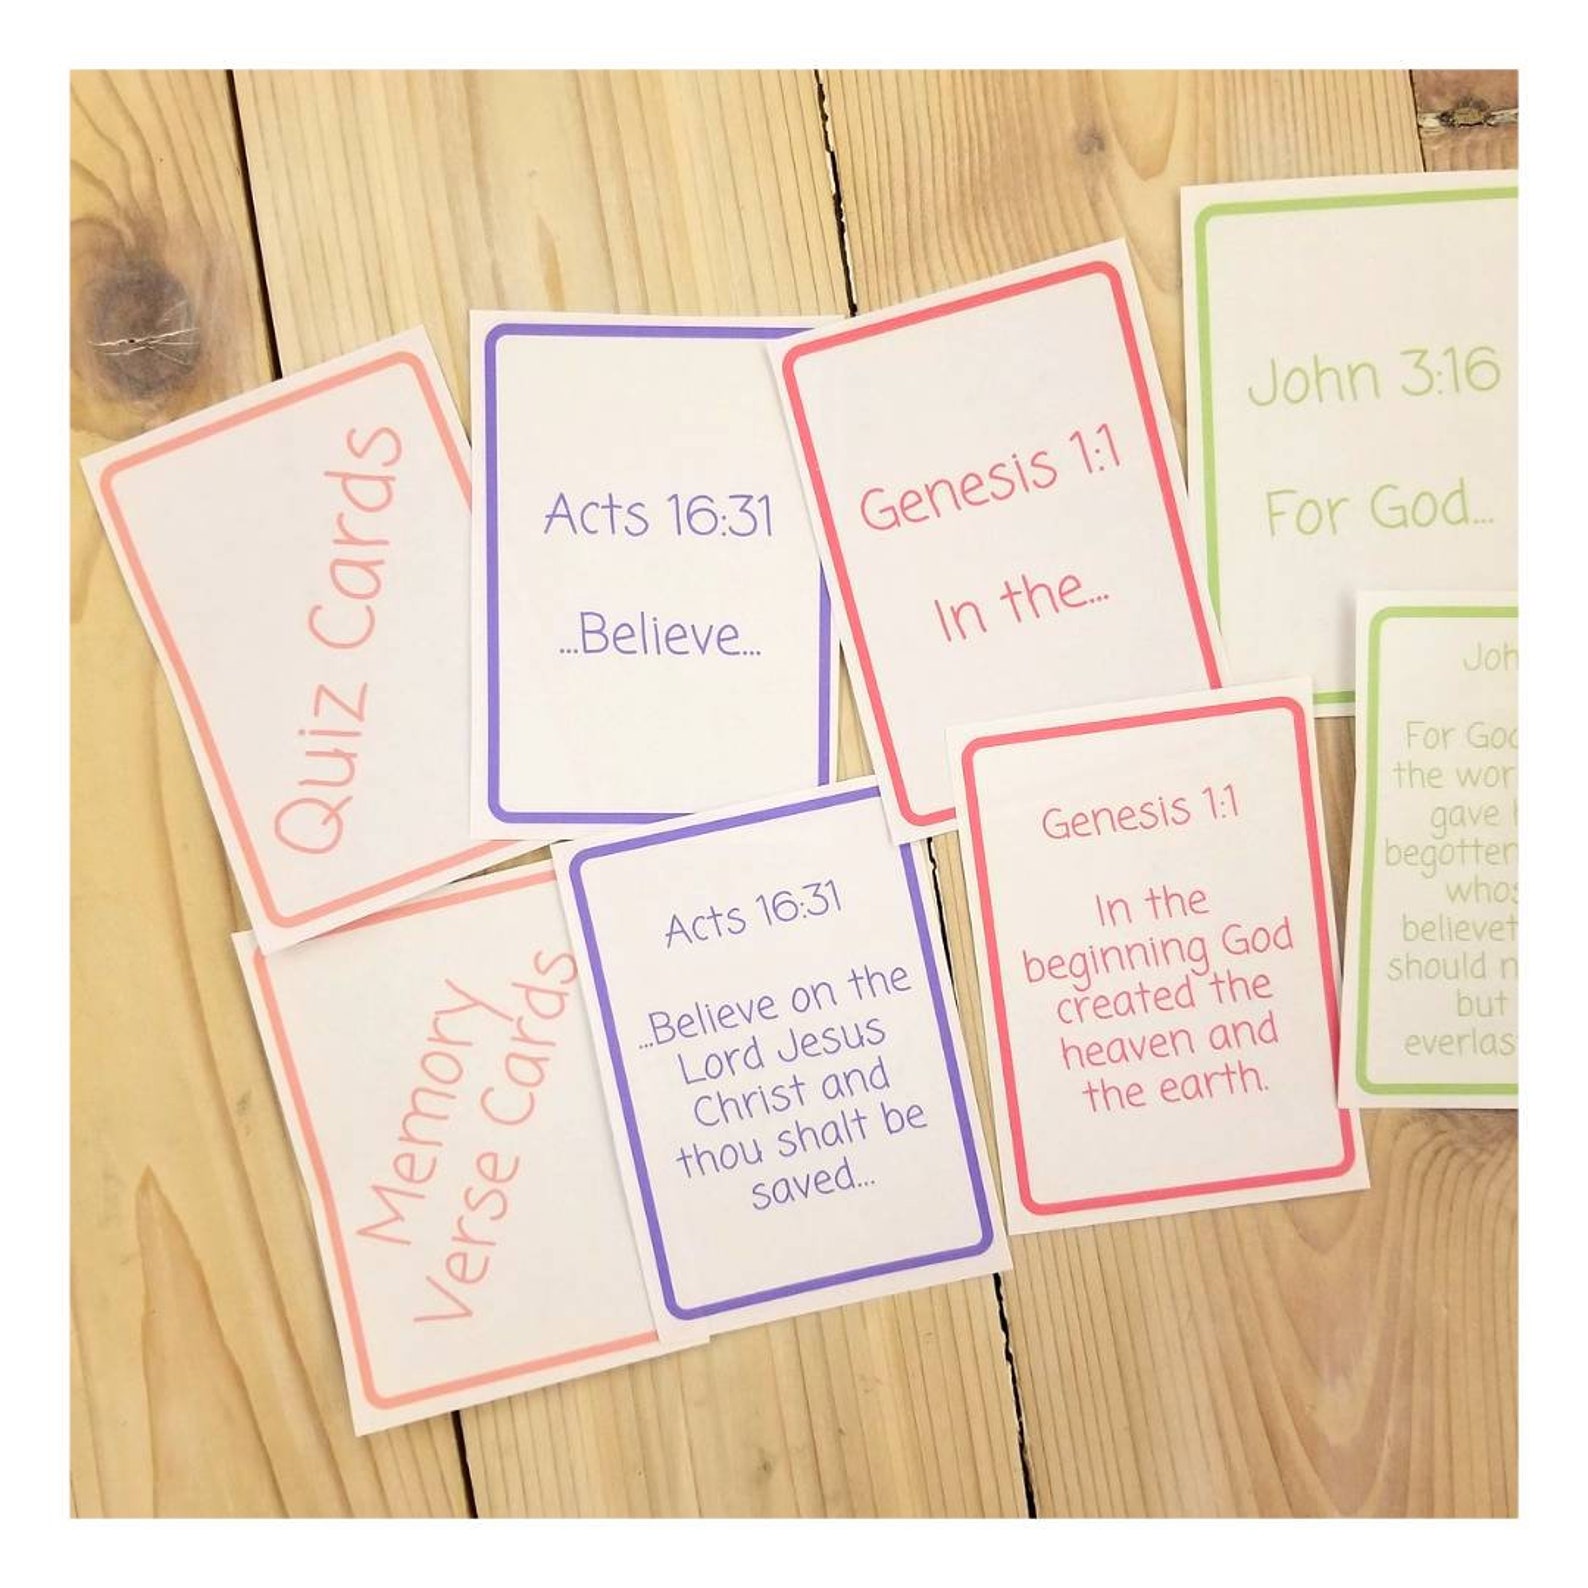 Quiz Cards
Acts 16:31
...Believe...
Genesis 1:1
In the...
John 3:16
For God...
Memory
Verse Cards
Acts 16:31
...Believe on the
Lord Jesus
Christ and
thou shalt be
saved...
Genesis 1:1
In the
beginning God
created the
heaven and
the earth.
For
the
gave
but
should